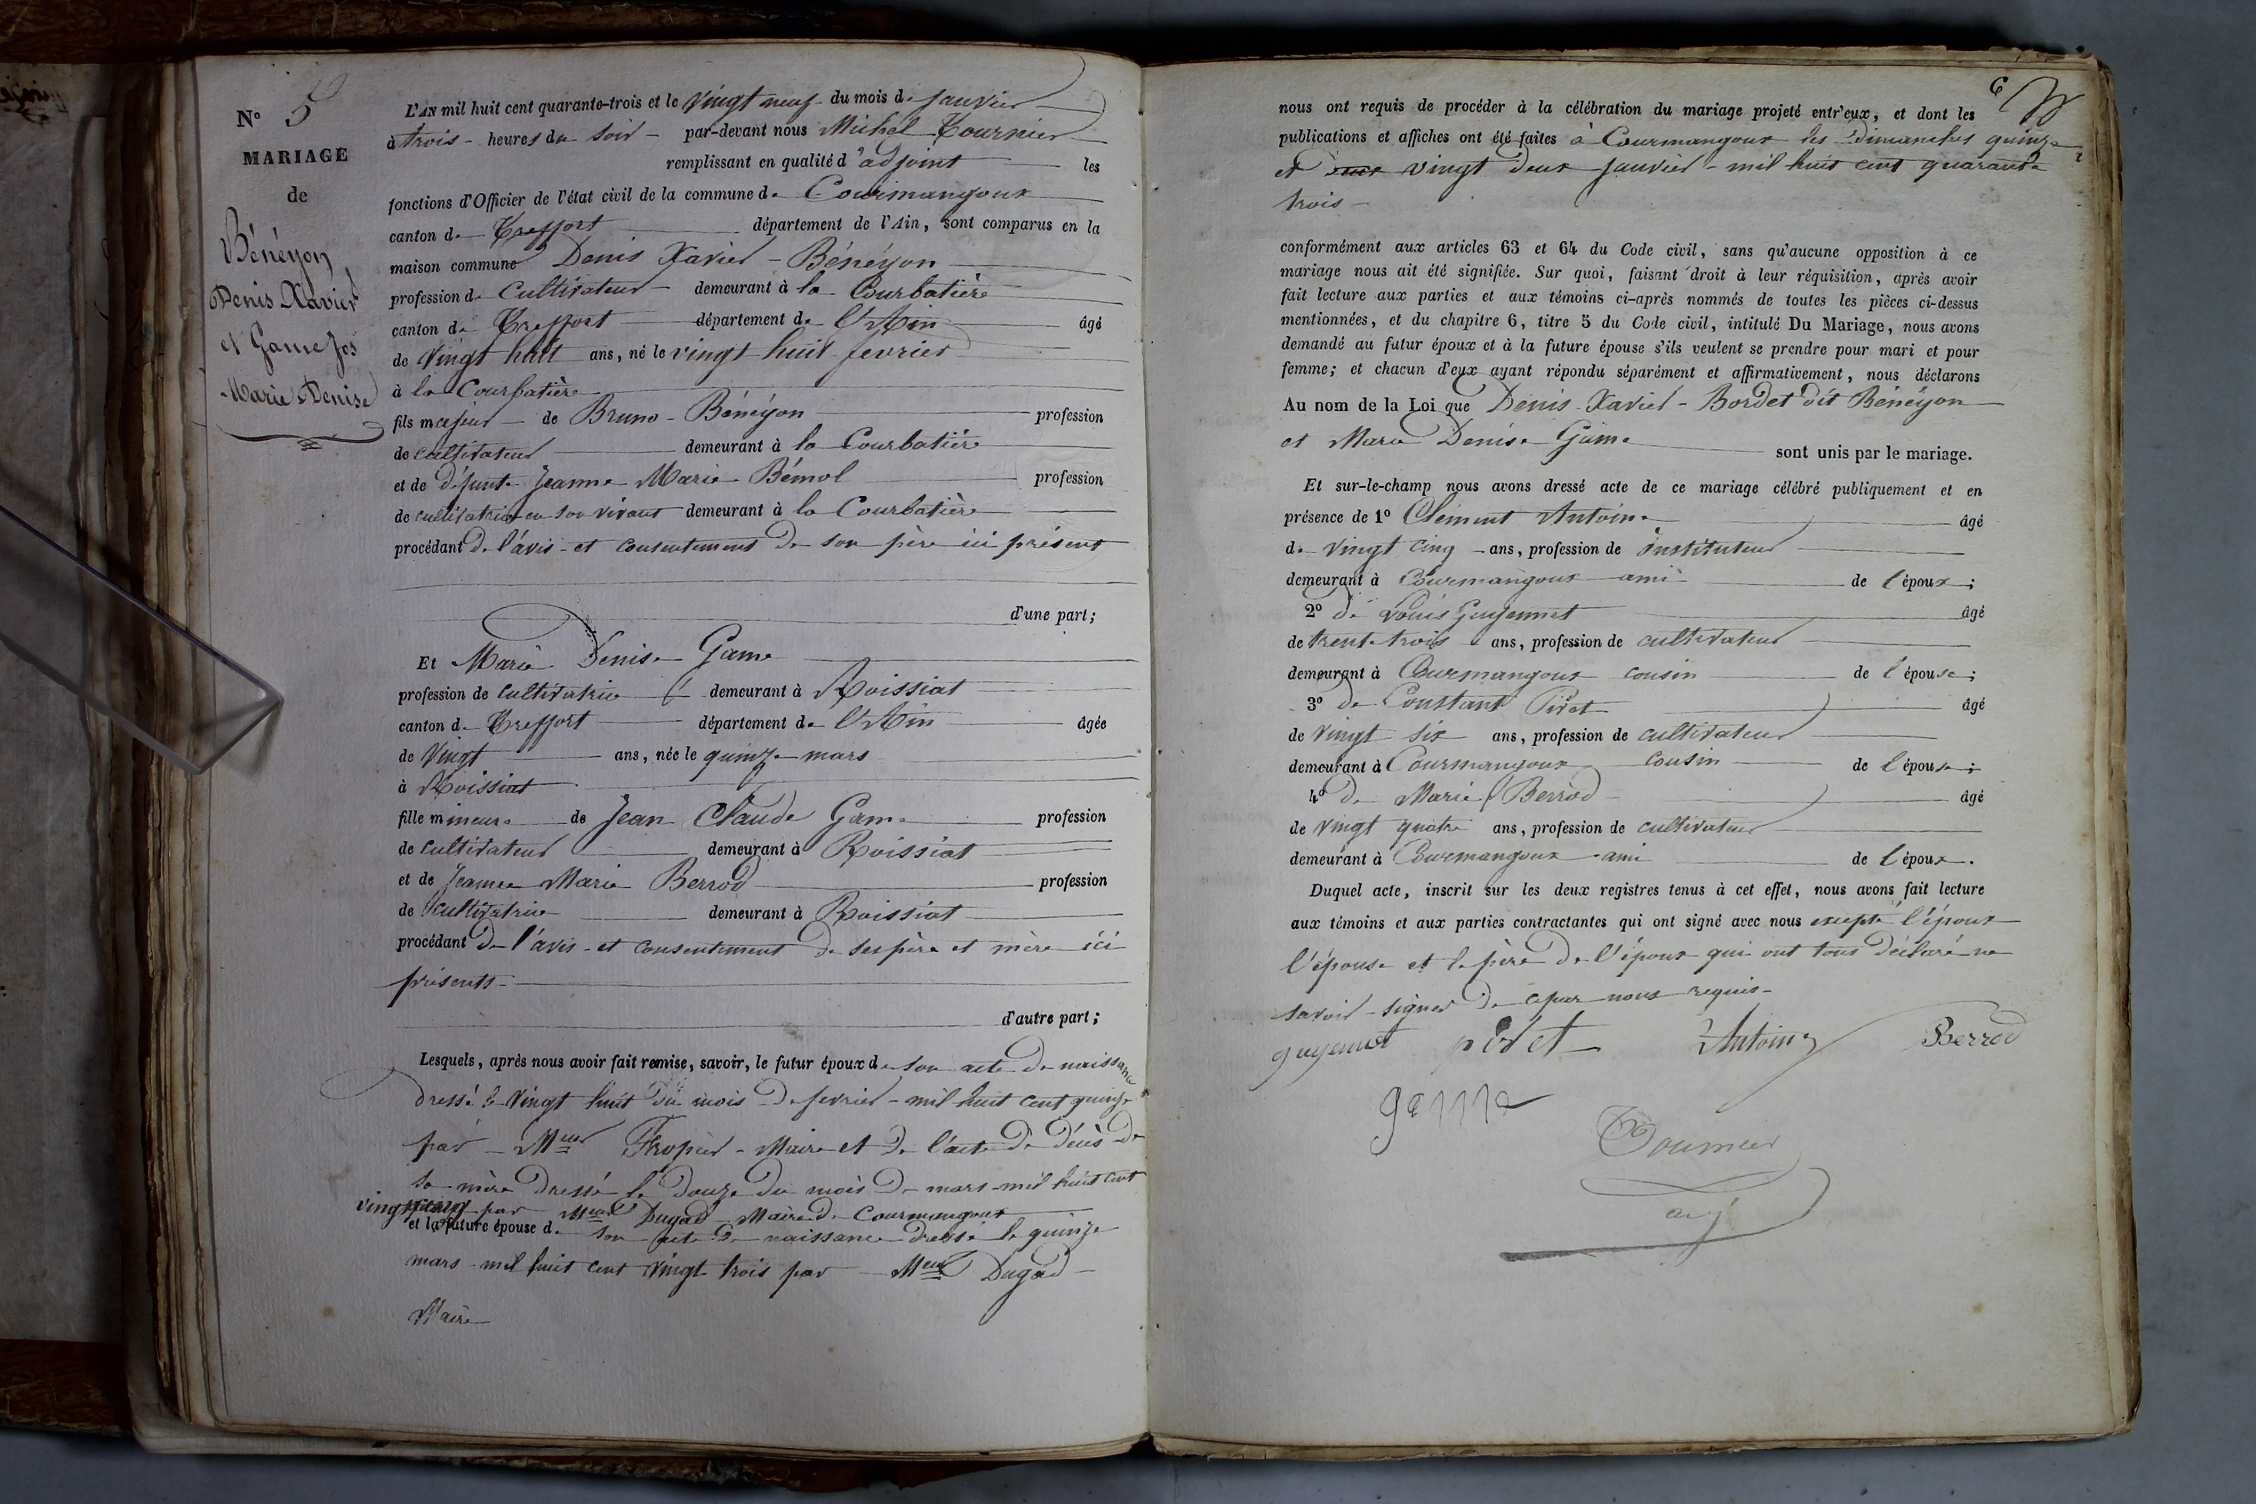 N° 5
MARIAGE
de
Bénéyon
Denis Xavier
et Game Jos
Marie Denise
L'AN mil huit cent quarante-trois et le vingt neuf du mois de janvier
à trois heures du soir par-devant nous Michel Tournier
remplissant en qualité d'adjoint les
fonctions d'Officier de l'état civil de la commune de Courmangoux
canton de Treffort département de l'Ain, sont comparus en la
maison commune Denis Xavier Bénéyon
profession de cultivateur demeurant à la Courbatière
canton de Treffort département de l'Ain âgé
de vingt huit ans, né le vingt huit fevrier
à la Courbatière
fils majeur de Bruno Bénéyon profession
de cultivateur demeurant à la Courbatière
et de défunte Jeanne Marie Bémol profession
de cultivatrice en son vivant demeurant à la Courbatière
procédant de l'avis et consentement de son père ici présent
d'une part;
Et Marie Denise Game
profession de cultivatrice demeurant à Roissiat
canton de Treffort département de l'Ain âgée
de vingt ans, née le quinze mars
à Roissiat
fille mineure de Jean Claude Game profession
de cultivateur demeurant à Roissiat
et de Jeanne Marie Berrod profession
de cultivatrice demeurant à Roissiat
procédant de l'avis et consentement de ses père et mère ici
présents
d'autre part;
Lesquels, après nous avoir fait remise, savoir, le futur époux de son acte de naissance
dressé le vingt huit du mois de fevrier mil huit cent quinze
par Meur Tropier Maire et de l'acte de décès de
sa mère dressé le douze du mois de mars mil huit cent
vingt par Meur Dugad Maire de Courmangoux
et la future épouse de son acte de naissance dressé le quinze
mars mil huit cent vingt trois par Meur Dugad
Maire
6
nous ont requis de procéder à la célébration du mariage projeté entr'eux, et dont les
publications et affiches ont été faites à Courmangoux les Dimanches quinze
et vingt deux janvier mil huit cent quarante
trois
conformément aux articles 63 et 64 du Code civil, sans qu'aucune opposition à ce
mariage nous ait été signifiée. Sur quoi, faisant droit à leur réquisition, après avoir
fait lecture aux parties et aux témoins ci-après nommés de toutes les pièces ci-dessus
mentionnées, et du chapitre 6, titre 5 du Code civil, intitulé Du Mariage, nous avons
demandé au futur époux et à la future épouse s'ils veulent se prendre pour mari et pour
femme; et chacun d'eux ayant répondu séparément et affirmativement, nous déclarons
Au nom de la Loi que Denis Xavier Bordet dit Bénéyon
et Marie Denise Game sont unis par le mariage.
Et sur-le-champ nous avons dressé acte de ce mariage célébré publiquement et en
présence de 1° Clément Antoine âgé
de vingt cinq ans, profession de instituteur
demeurant à Courmangoux ami de l'époux;
2° de Louis Guyennet âgé
de trente trois ans, profession de cultivateur
demeurant à Courmangoux cousin de l'épouse;
3° de Constant Pivet âgé
de vingt six ans, profession de cultivateur
demeurant à Courmangoux cousin de l'épouse;
4° de Marie Berrod âgé
de vingt quatre ans, profession de cultivateur
demeurant à Courmangoux ami de l'époux.
Duquel acte, inscrit sur les deux registres tenus à cet effet, nous avons fait lecture
aux témoins et aux parties contractantes qui ont signé avec nous excepté l'époux
l'épouse et le père de l'époux qui ont tous déclaré ne
savoir signer de ce par nous requis
guyennet pivet Antoine Berrod
game
Tournier
adj